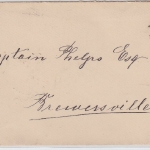 Captain Phelps Esq
Brewersville